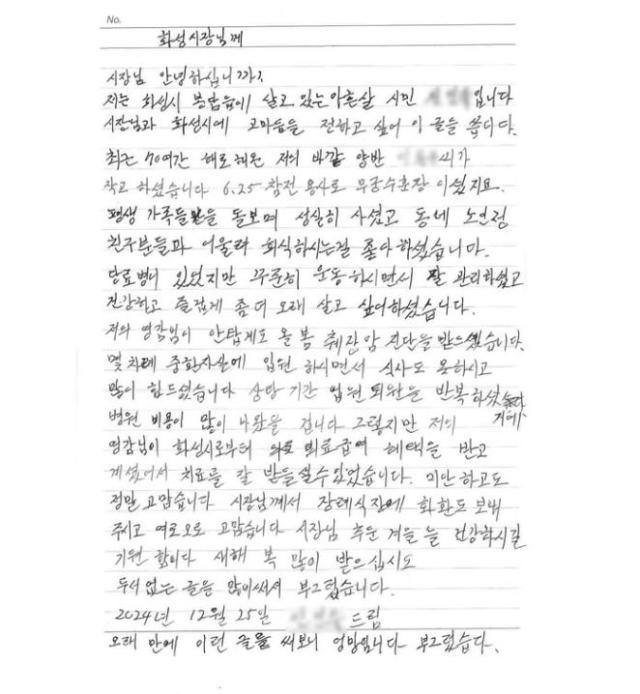 No.
화성시장님께
시장님 안녕하십니까?
저는 화성시 봉담읍에 살고 있는 아흔살 시민 입니다
시장님과 화성시에 고마음을 전하고 싶어 이 글을 씁니다.
최근 70여간 해로해온 저의 바깥 양반 씨가
작고 하셨습니다 6.25 참전 용사로 무궁수훈장 이셨지요.
평생 가족들을 돌보며 성실히 사셨고 동네 노인정
친구분들과 어울려 회식하시는걸 좋아하셨습니다.
당료병이 있었지만 꾸준히 운동하시면서 잘 관리하셨고
건강하고 즐겁게 좀 더 오래 살고 싶어하셨습니다.
저의 영감님이 안탑게도 올 봄 췌장암 진단을 받으셨습니다.
몇차례 중환자실에 입원 하시면서 식사도 못하시고
많이 힘드셨습니다 상당 기간 입원 퇴원을 반복하셨습니다
병원 비용이 많이 나왔을 겁니다 그렇지만 저의
영감님이 화성시로부터 의료급여 혜택을 받고
계셨어서 치료를 잘 받을실수있었습니다. 미안하고도
정말 고맙습니다 시장님께서 장례식장에 화환도 보내
주시고 여로모로 고맙습니다 시장님 추운 겨울 늘 건강하시길
기원 합니다 새해 복 많이 받으십시요
두서 없는 글을 많이써서 부그럽습니다.
2024년 12월 25일 드림
오래 만에 이런 글을 써보니 엉망입니다 부그럽습다.